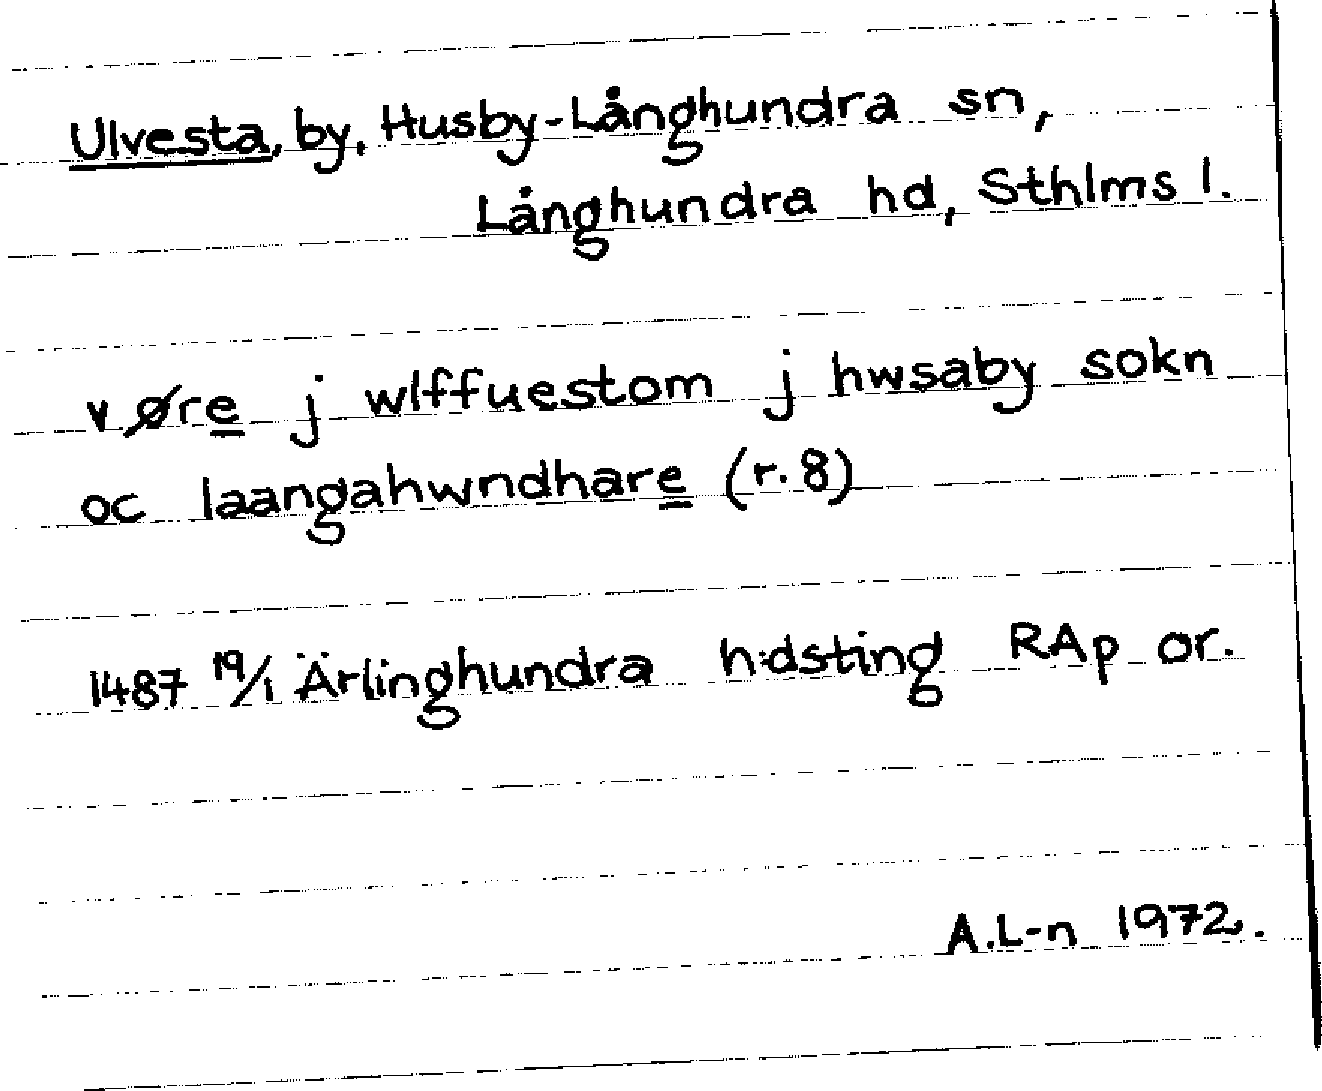 Ulvesta, by, Husby-Långhundra sn,
Långhundra hd, Sthlms l.
vøre j wlffuestom j hwsaby sokn
oc laangahwndhare (r. 8)
1487 19/1 Ärlinghundra hdsting RAp or.
A.L-n 1972.